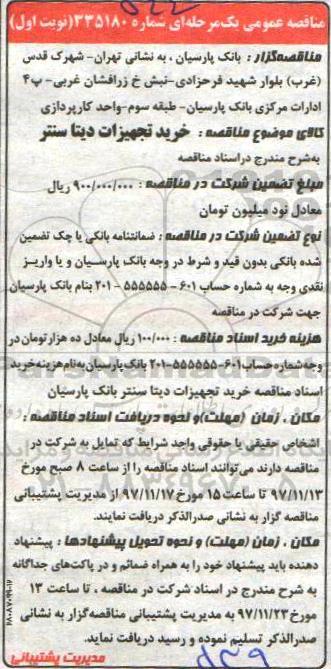 مناقصه عمومی یک‌مرحله‌ای شماره ۳۳۵۱۸۰ (نوبت اول)
مناقصه‌گزار: بانک پارسیان، به نشانی تهران- شهرک قدس
(غرب) بلوار شهید فرحزادی-نبش خ زرافشان غربی- پ۴
ادارات مرکزی بانک پارسیان- طبقه سوم-واحد کارپردازی
کالای موضوع مناقصه: خرید تجهیزات دیتا سنتر
به‌شرح مندرج دراسناد مناقصه
مبلغ تضمین شرکت در مناقصه: ۹۰۰/۰۰۰/۰۰۰ ریال
معادل نود میلیون تومان
نوع تضمین شرکت در مناقصه: ضمانتنامه بانکی یا چک تضمین
شده بانکی بدون قید و شرط در وجه بانک پارسیان و یا واریز
نقدی وجه به شماره حساب ۶۰۱ - ۵۵۵۵۵۵ - ۲۰۱ بنام بانک پارسیان
جهت شرکت در مناقصه
هزینه خرید اسناد مناقصه: ۱۰۰/۰۰۰ ریال معادل ده هزار تومان در
وجه‌شماره‌حساب ۶۰۱-۵۵۵۵۵۵-۲۰۱ بانک پارسیان به‌نام هزینه خرید
اسناد مناقصه خرید تجهیزات دیتا سنتر بانک پارسیان
مکان، زمان (مهلت)و نحوه دریافت اسناد مناقصه:
اشخاص حقیقی یا حقوقی واجد شرایط که تمایل به شرکت در
مناقصه دارند می‌توانند اسناد مناقصه را از ساعت ۸ صبح مورخ
۹۷/۱۱/۱۳ تا ساعت ۱۵ مورخ ۹۷/۱۱/۱۷ از مدیریت پشتیبانی
مناقصه گزار به نشانی صدرالذکر دریافت نمایند.
مکان، زمان (مهلت) و نحوه تحویل پیشنهادها: پیشنهاد
دهنده باید پیشنهاد خود را به همراه ضمائم و در پاکت‌های جداگانه
به شرح مندرج در اسناد شرکت در مناقصه، تا ساعت ۱۳
مورخ ۹۷/۱۱/۲۳ به مدیریت پشتیبانی مناقصه‌گزار به نشانی
صدرالذکر تسلیم نموده و رسید دریافت نماید.
مدیریت پشتیبانی